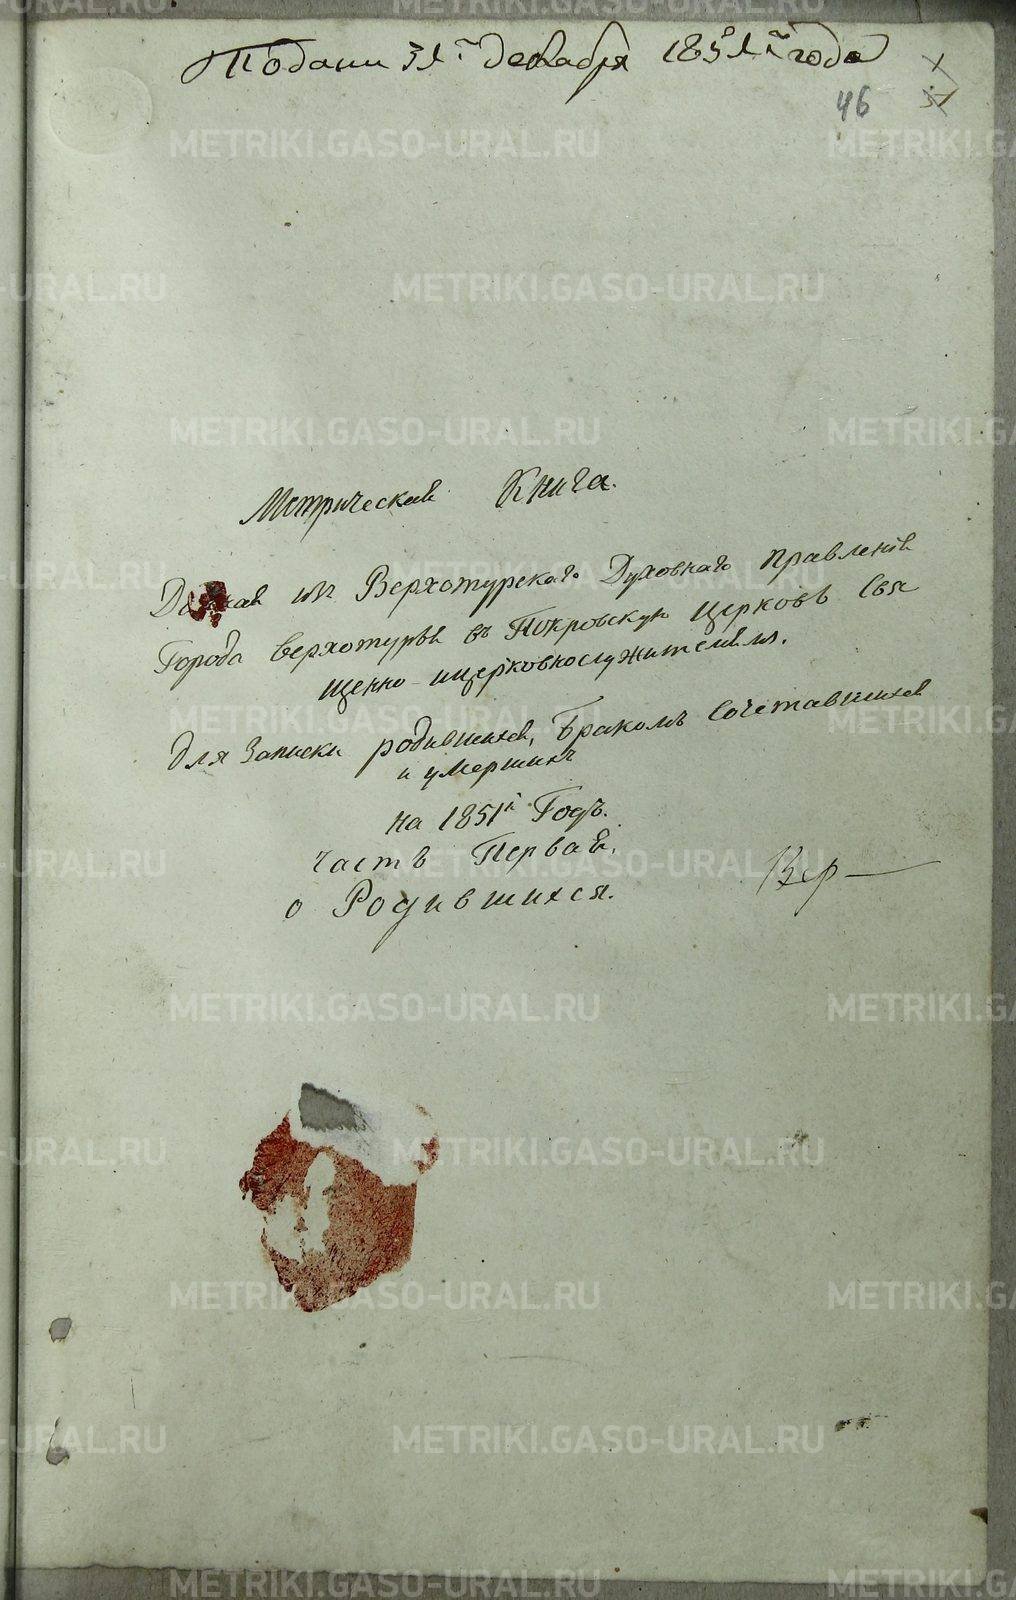 Подани 31го декабря 1851го года
46
Метрическая Книга.
Данная изъ Верхотурскаго Духовнаго Правленія
Города Верхотурья въ Покровскую Церковь Свя
щенно-ицерковнослужителямъ.
Для Записки родившихся, Бракомъ Сочетавшихся
и умершихъ
на 1851й Годъ.
Часть Первая.
о Родившихся.
Вер
METRIKI.GASO-URAL.RU